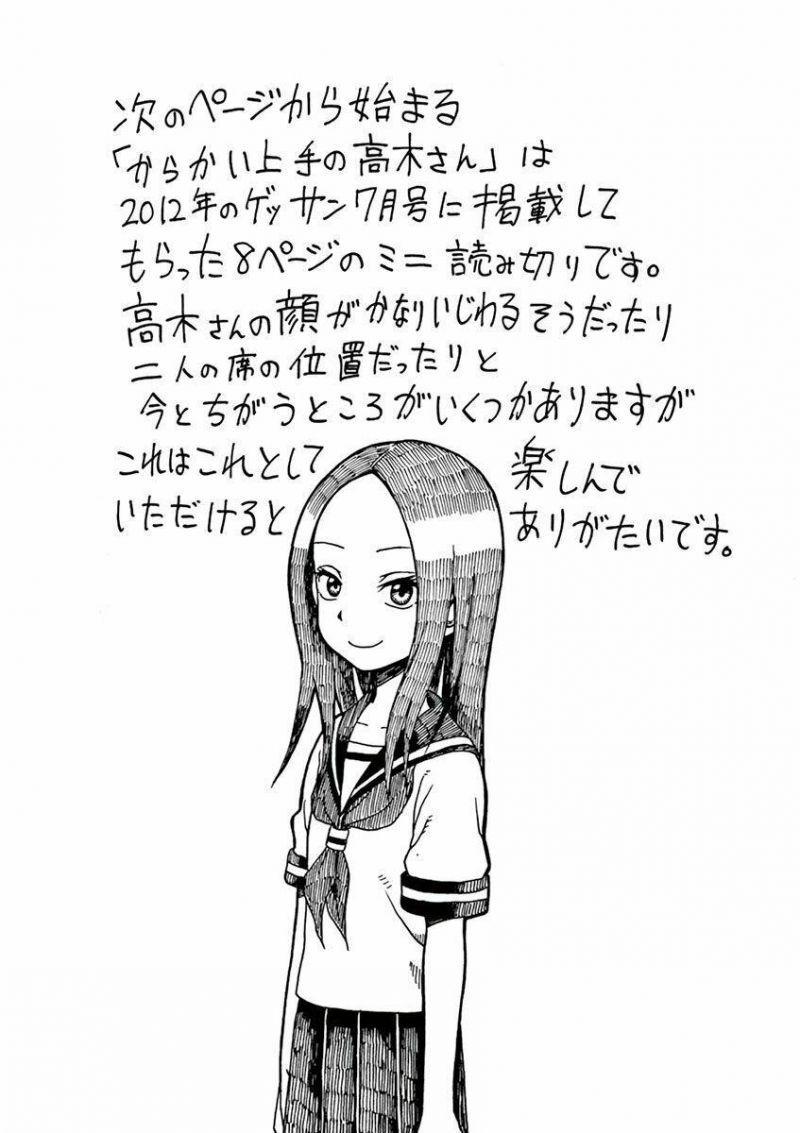 次のページから始まる
「からかい上手の高木さん」は
2012年のゲッサン7月号に掲載して
もらった8ページのミニ読み切りです。
高木さんの顔がかなりいじわるそうだったり
二人の席の位置だったりと
今とちがうところがいくつかありますが
これはこれとして楽しんで
いただけるとありがたいです。